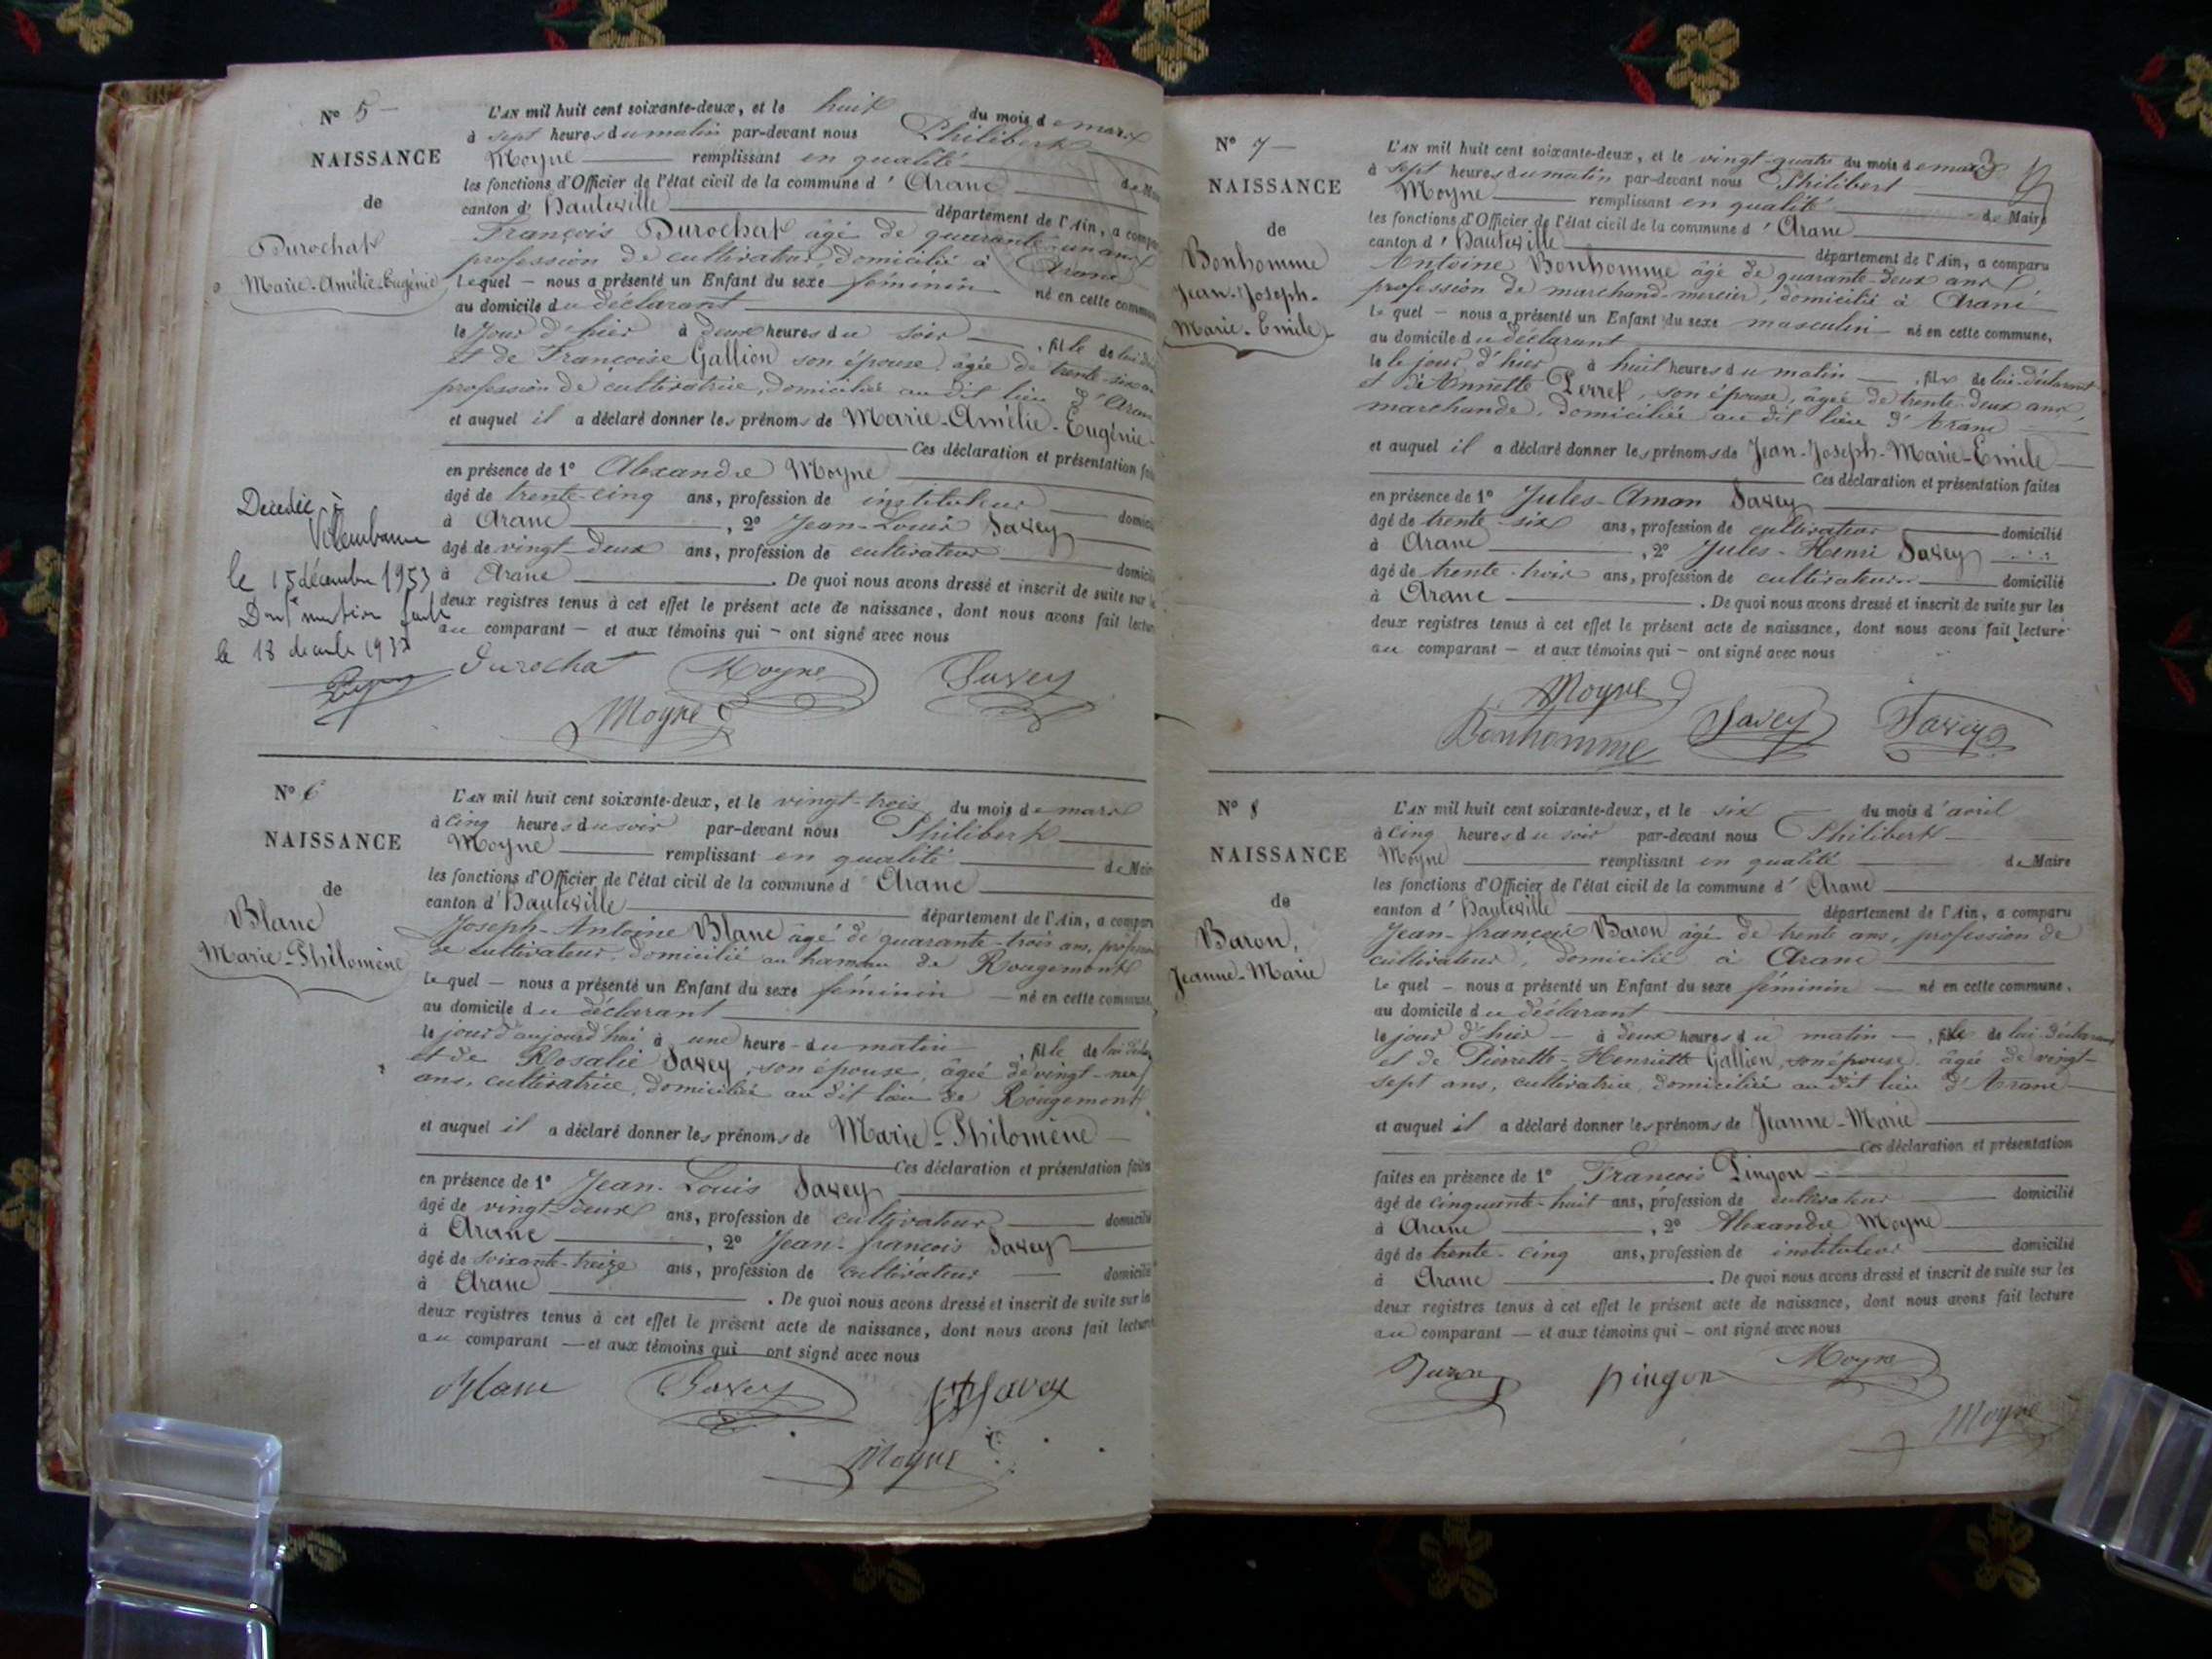 N° 5
NAISSANCE
de
Durochat
Marie-Amélie-Eugénie
L'AN mil huit cent soixante-deux, et le huit du mois de mars
à sept heures du matin par-devant nous Philibert
Moyne remplissant en qualité de
les fonctions d'Officier de l'état civil de la commune d'Aranc
canton d'Hauteville département de l'Ain, a
François Durochat âgé de quarante-un ans
profession de cultivateur, domicilié à Aranc
Lequel – nous a présenté un Enfant du sexe féminin né en cette
au domicile du déclarant
le jour d'hier à deux heures du soir , fille de lui
et de Françoise Gallien son épouse, âgée de trente-six
profession de cultivatrice, domiciliée au dit lieu d'Aranc
et auquel il a déclaré donner les prénoms de Marie-Amélie-Eugénie
Ces déclaration et présentation
en présence de 1° Alexandre Moyne
âgé de trente-cinq ans, profession de instituteur
à Aranc , 2° Jean-Louis Savey
âgé de vingt-deux ans, profession de cultivateur
à Aranc . De quoi nous avons dressé et inscrit de suite sur
deux registres tenus à cet effet le présent acte de naissance, dont nous avons fait
au comparant – et aux témoins qui – ont signé avec nous
Decédée à
Villeurbanne
le 15 décembre 1953
Dont mention faite
le 18
Durochat Moyne Savey
Moyne
N° 6
NAISSANCE
de
Blanc
Marie-Philomène
L'AN mil huit cent soixante-deux, et le vingt-trois du mois de mars
à cinq heures du soir par-devant nous Philibert
Moyne remplissant en qualité de
les fonctions d'Officier de l'état civil de la commune d'Aranc
canton d'Hauteville département de l'Ain, a
Joseph-Antoine Blanc âgé de quarante-trois ans,
de cultivateur, domicilié au hameau de Rougemont
Lequel – nous a présenté un Enfant du sexe féminin – né en cette commune,
au domicile du déclarant
le jour d'aujourd'hui à une heure du matin , fille de lui
et de Rosalie Savey, son épouse, âgée de vingt-neuf
ans, cultivatrice, domiciliée au dit lieu de Rougemont
et auquel il a déclaré donner les prénoms de Marie-Philomène
Ces déclaration et présentation faites
en présence de 1° Jean-Louis Savey
âgé de vingt-deux ans, profession de cultivateur domicilié
à Aranc , 2° Jean-François Savey
âgé de soixante-treize ans, profession de cultivateur domicilié
à Aranc . De quoi nous avons dressé et inscrit de suite sur les
deux registres tenus à cet effet le présent acte de naissance, dont nous avons fait lecture
au comparant – et aux témoins qui ont signé avec nous
Blanc Savey Savey
Moyne
N° 7
NAISSANCE
de
Bonhomme
Jean-Joseph-
Marie-Emile
3
L'AN mil huit cent soixante-deux, et le vingt-quatre du mois de mars
à sept heures du matin par-devant nous Philibert
Moyne remplissant en qualité de Maire
les fonctions d'Officier de l'état civil de la commune d'Aranc
canton d'Hauteville département de l'Ain, a comparu
Antoine Bonhomme âgé de quarante-deux ans
profession de marchand-mercier, domicilié à Aranc
Lequel – nous a présenté un Enfant du sexe masculin né en cette commune,
au domicile du déclarant
le le jour d'hier à huit heures du matin , fils de lui déclarant
et d'Annette Perret, son épouse, âgée de trente-deux ans,
marchande, domiciliée au dit lieu d'Aranc
et auquel il a déclaré donner les prénoms de Jean-Joseph-Marie-Emile
Ces déclaration et présentation faites
en présence de 1° Jules-Aman Savey
âgé de trente-six ans, profession de cultivateur domicilié
à Aranc , 2° Jules-Henri Savey
âgé de trente-trois ans, profession de cultivateur domicilié
à Aranc . De quoi nous avons dressé et inscrit de suite sur les
deux registres tenus à cet effet le présent acte de naissance, dont nous avons fait lecture
au comparant – et aux témoins qui – ont signé avec nous
Moyne
Bonhomme Savey Savey
N° 8
NAISSANCE
de
Baron,
Jeanne-Marie
L'AN mil huit cent soixante-deux, et le six du mois d'avril
à cinq heures du soir par-devant nous Philibert
Moyne remplissant en qualité de Maire
les fonctions d'Officier de l'état civil de la commune d'Aranc
canton d'Hauteville département de l'Ain, a comparu
Jean-François Baron âgé de trente ans, profession de
cultivateur, domicilié à Aranc
Lequel – nous a présenté un Enfant du sexe féminin – né en cette commune,
au domicile du déclarant
le jour d'hier – à deux heures du matin – , fille de lui déclarant
et de Pierrette-Henriette Gallien, son épouse, âgée de vingt-
sept ans, cultivatrice, domiciliée au dit lieu d'Aranc
et auquel il a déclaré donner les prénoms de Jeanne-Marie
Ces déclaration et présentation
faites en présence de 1° François Pingon
âgé de cinquante-huit ans, profession de cultivateur domicilié
à Aranc , 2° Alexandre Moyne
âgé de trente-cinq ans, profession de instituteur domicilié
à Aranc . De quoi nous avons dressé et inscrit de suite sur les
deux registres tenus à cet effet le présent acte de naissance, dont nous avons fait lecture
au comparant – et aux témoins qui – ont signé avec nous
Baron pingon Moyne
Moyne